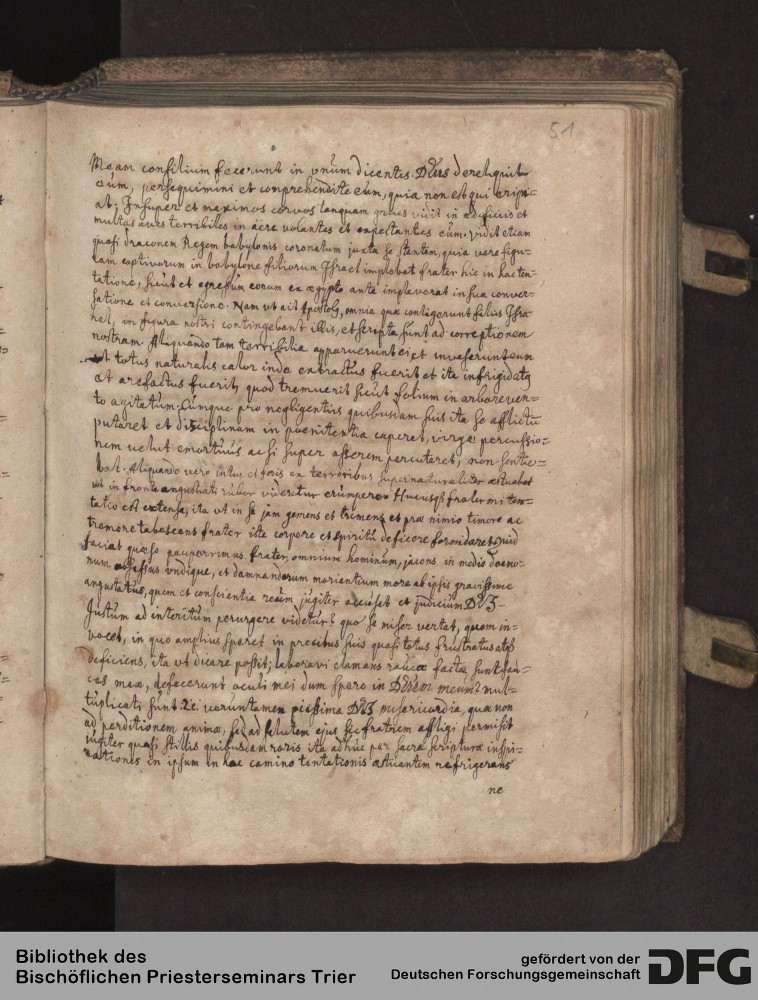 51
Meam consilium fecerunt in vnum dicentes. DEUS dereliquit
eum, persequimini et comprehendite eum, quia non est qui eripi=
at; Insuper et maximos corvos tanquam grues vidit in ædificiis et
multas aves terribiles in aëre volantes et expectantes eum. Vidit etiam
quasi draconem Regem babylonis coronatum juxta se stantem, quia vere figu=
ram captivorum in babylone filiorum Israel implebat frater hic in hac ten=
tatione, sicut et egressum eorum ex ægypto ante impleverat in sua conver=
satione et conversione. Nam ut ait Apostolq, omnia quæ contigerunt filiis Isra=
hel, in figura nostri contingebant illis, et scripta sunt ad correptionem
nostram. Aliquando tam terribilia apparuerunt ei et invaserunt eum
ut totus naturalis calor inde extractus fuerit et ita infrigidatq
at arefactus fuerit, quod tremuerit sicut folium in arbore ven=
to agitatum. Cumque pro negligentiis quibusdam suis ita se afflictu
putaret et disciplinam in poenitentia caperet, virgæ percussio=
nem velut emortuus ac si super asserem percuteret, non sentie=
bat. Aliquando vero intus et foris ex terroribus supernaturaliter æstuabat
ut in fronte angustiati rubor videretur erumpere. Hucusqß frater mi ten=
tatio est extensa, ita ut in se jam gemens et tremens et præ nimio timore ac
tremore tabescens frater iste corpore et spiritu deficere formidaret. quid
faciat quæso pauperrimus frater, omnium hominum, jacens in medio dæmo=
num obsessus undique, et damnandorum morientium more ab ipsis gravissime
angustatus, quem et conscientia reum jugiter accuset et judicium DEJ
Justum ad interitum perurgere videtur? quo se miser vertat, quem in=
vocet, in quo amplius speret in precibus suis quasi totus frustratus atqß
deficiens, ita ut dicere possit; laboravi clamans raucæ factæ sunt fau=
ces meæ, defecerunt oculi mei dum spero in DEUM meum? mul=
tuplicati sunt &c veruntamen piissima DEJ misericordia, quæ non
ad perditionem animæ, sed ad salutem ejus sic fratrem affligi permisit
jugiter quasi stillis quibusdam roris ita adhuc per sacræ scripturæ inspi=
rationes in ipsum in hac camino tentationis æstuantem refrigerans
ne
Bibliothek des
Bischöflichen Priesterseminars Trier
gefördert von der
Deutschen Forschungsgemeinschaft
DFG